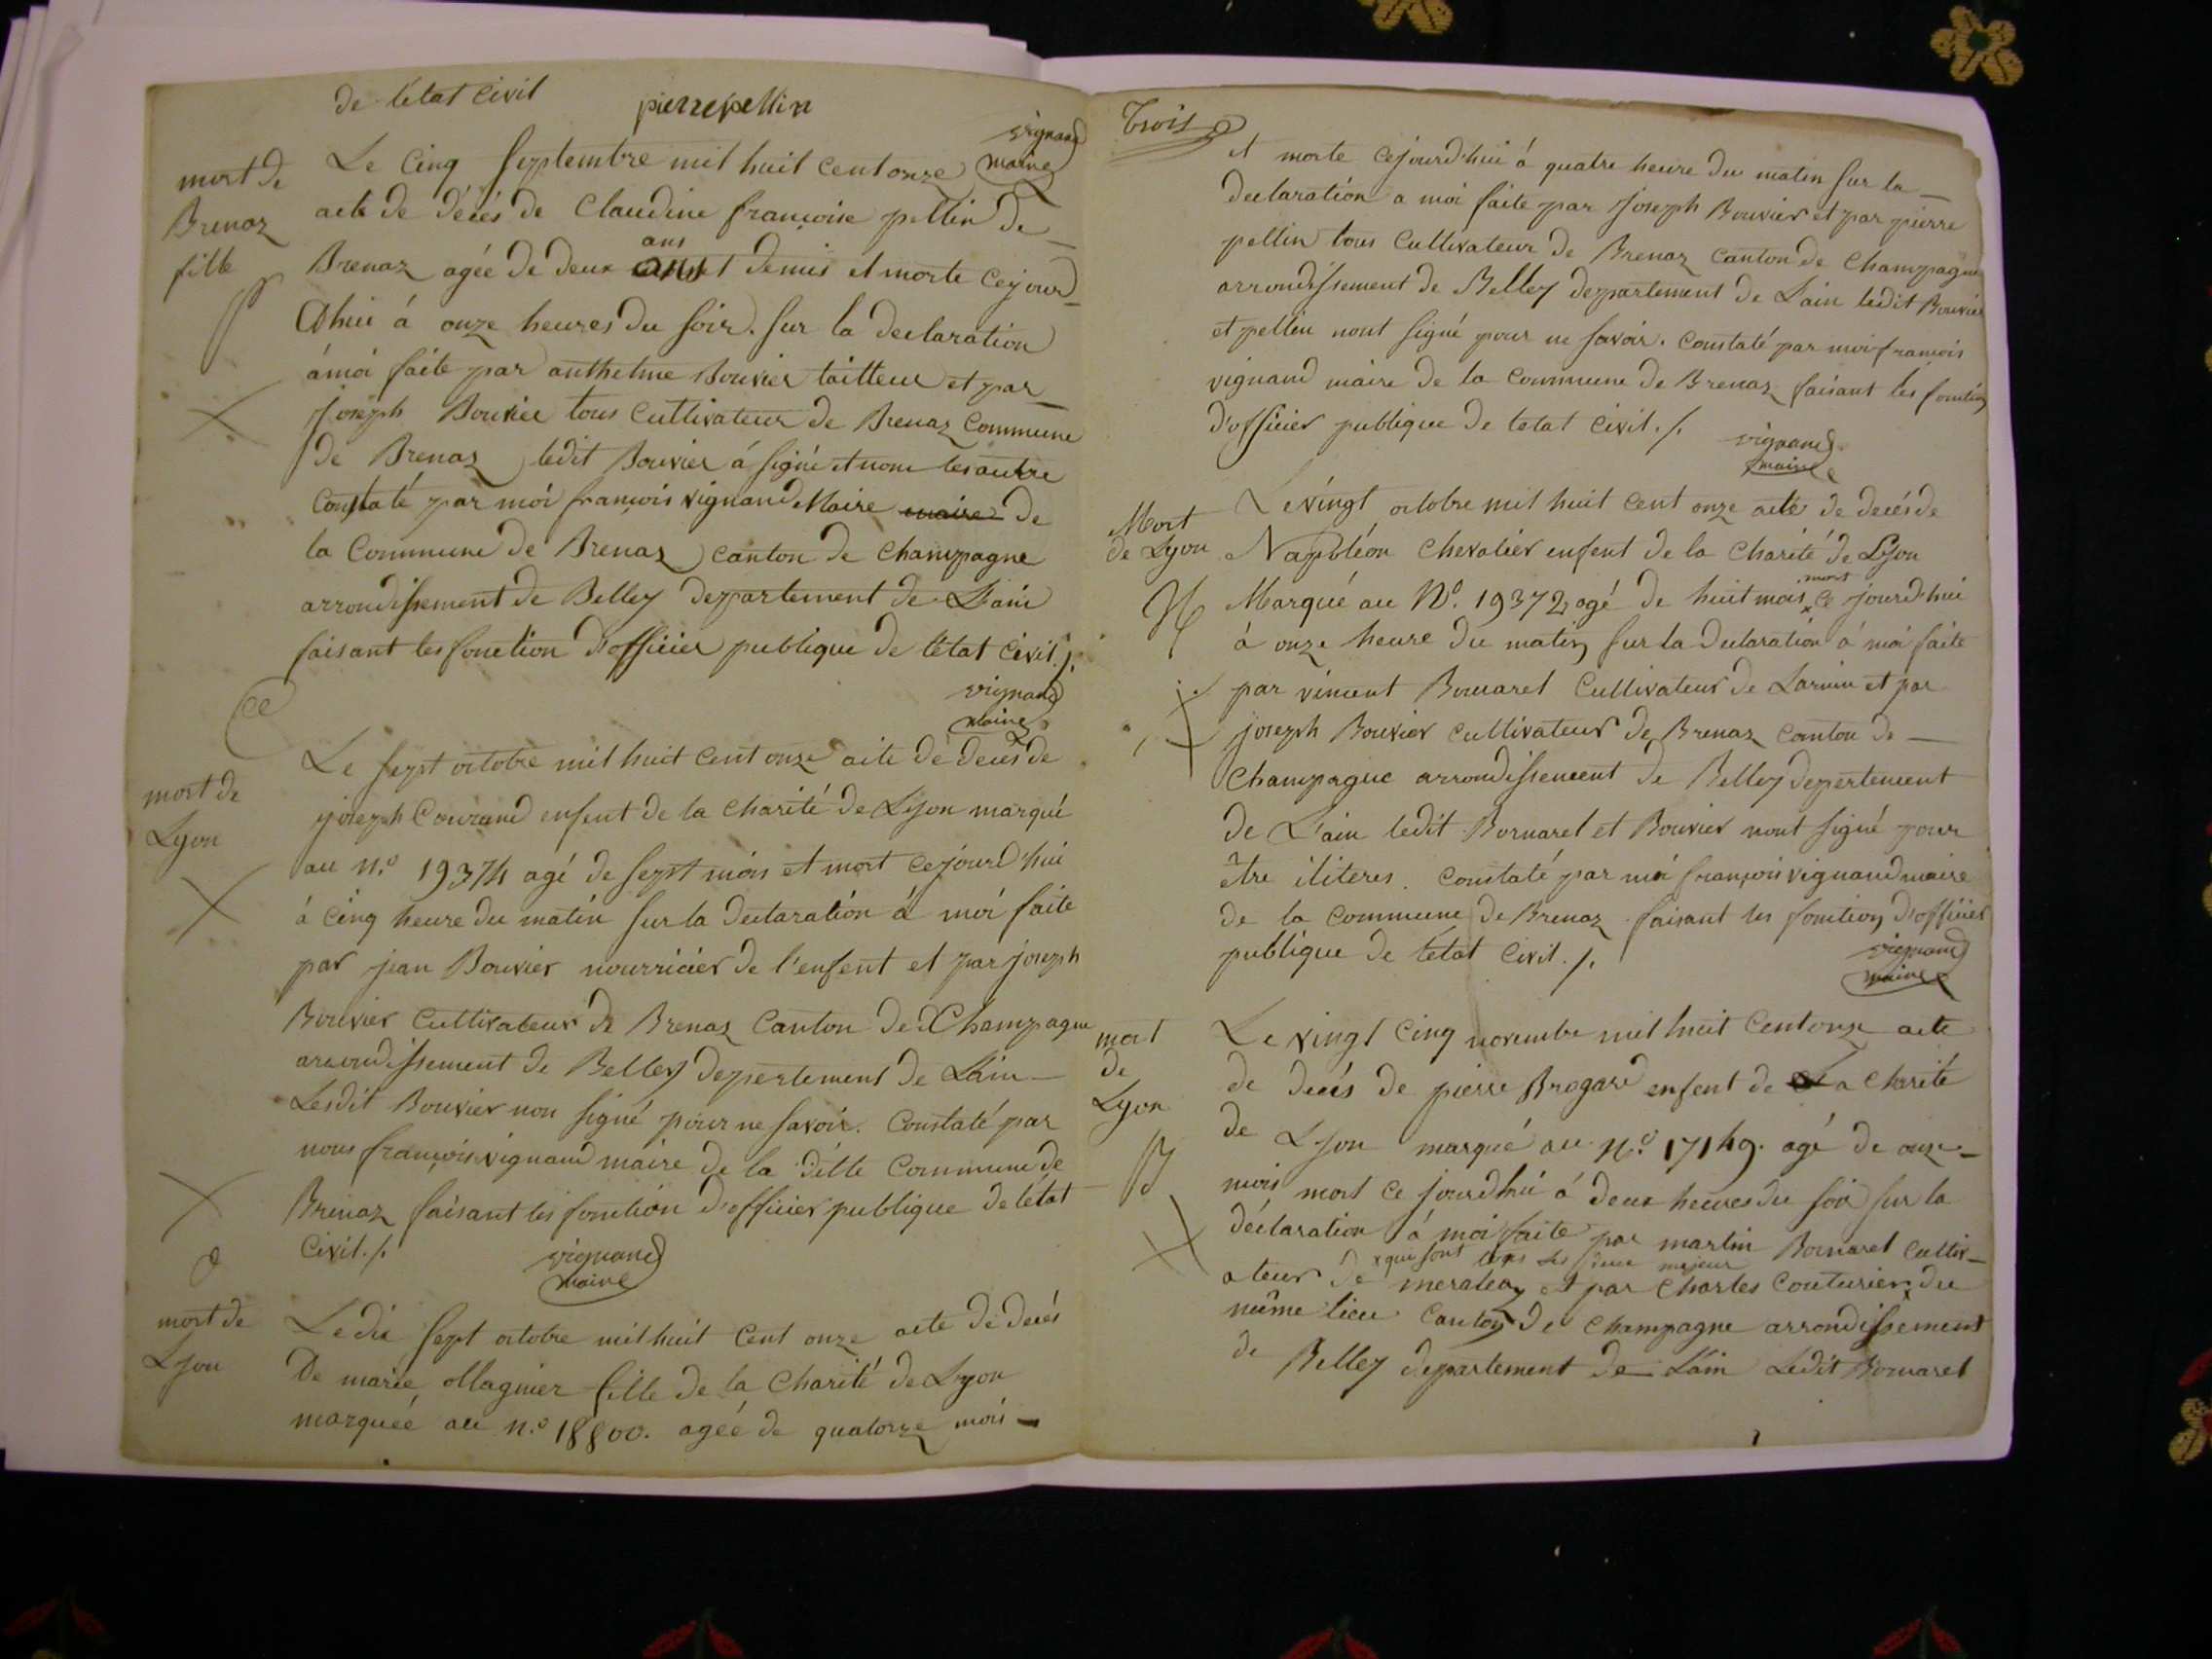 de l'état civil
pierre pellin
vignand
maire
mort de
Brenaz
fille
Le Cinq Septembre mil huit cent onze
acte de décés de Claudine françoise pellin de
ans
Brenaz agée de deux et demis et morte cejour
dhui á onze heures du soir. sur la declaration
á moi faite par anthelme Bouvier tailleur et par
Joseph Bouvier tous cultivateur de Brenaz Commune
de Brenaz ledit Bouvier á signé et nom les autre
Constaté par moi françois vignand Maire maire de
la Commune de Brenaz canton de Champagne
arrondissement de Belley departement de L'ain
faisant les fonction d'officier publique de l'état civil ./.
vignand
maire
mort de
Lyon
Le sept octobre mil huit cent onze acte de deces de
joseph Courand enfent de la charité de Lyon marqué
au n.o 19374 agé de sept mois et mort cejourd'hui
á cinq heure du matin sur la declaration á moi faite
par jean Bouvier nourricier de l'enfent et par joseph
Bouvier cultivateur de Brenaz Canton de Champagne
arrondissement de Belley depertement de L'ain
Lesdit Bouvier non signé pour ne savoir. Constaté par
nous françois vignand maire de la ditte Commune de
Brenaz faisant les fonction d'officier publique de l'état
Civil ./.
vignand
maire
mort de
Lyon
Le dix sept octobre mil huit cent onze acte de decés
De marie ollagnier fille de la Charité de Lyon
marqueé au n.o 18800. agée de quatorze mois
Trois
et morte cejourd'hui á quatre heure du matin sur la
declaration a moi faite par Joseph Bouvier et par pierre
pellin tous cultivateur de Brenaz canton de Champagne
arrondissement de Belley departement de L'ain ledit Bouvier
et pellin nont signé pour ne savoir. Constaté par moi françois
vignand maire de la Commune de Brenaz faisant les fonction
d'officier publique de letat civil ./.
vignand
maire
Mort
de Lyon
Le vingt octobre mil huit cent onze acte de decés de
Napoléon Chevalier enfent de la Charité de Lyon
mort
Marqué au No. 19372 agé de huit mois ce jourd'hui
á onze heure du matin sur la declaration á moi faite
par vincent Bornarel Cultivateur de et par
joseph Bouvier cultivateur de Brenaz canton de
Champagne arrondissement de Belley depertement
de L'ain ledit Bornarel et Bouvier nont signé pour
etre iliteres. Constaté par moi françois vignand maire
de la Commune de Brenaz faisant les fonction d'officier
publique de l'etat Civil ./.
vignand
maire
mort
de
Lyon
Le vingt cinq novembre mil huit cent onze acte
de decés de pierre Brogard enfent de La Charité
de Lyon marqué au N.o 17149. agé de onze
mois mort ce jourdhui á deux heures du soir sur la
déclaration á moi faite par martin Bornarel cultiv-
x qui sont tous les deux majeur
ateur de et par Charles Couturier du
même lieu Canton de Champagne arrondissement
de Belley departement de L'ain Ledit Bornarel